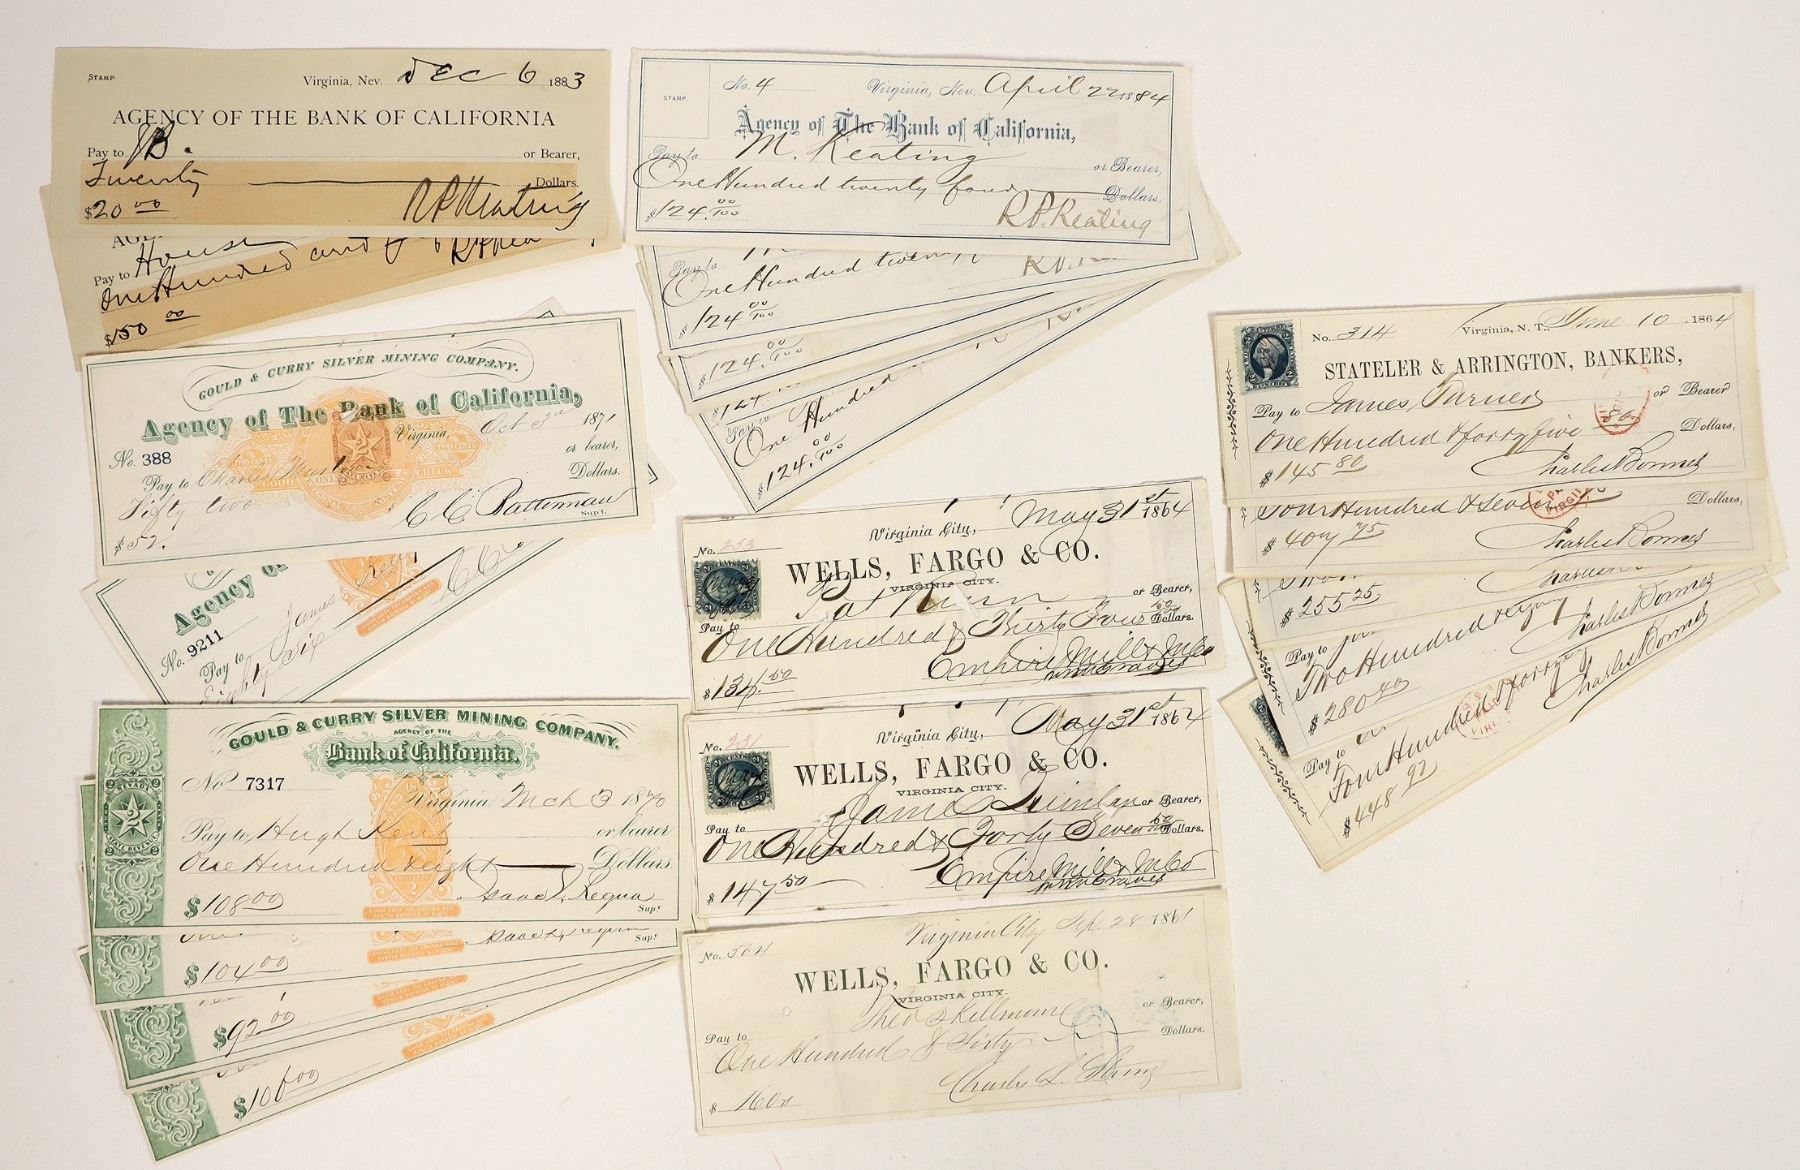 STAMP
Virginia, Nev. Dec 6 1883
AGENCY OF THE BANK OF CALIFORNIA
Pay to or Bearer,
Twenty Dollars.
$20.00 R P Keating
AGE
Pay to House
One Hundred and
$150.00
No. 4 Virginia, Nev. April 22 1884
STAMP.
Agency of The Bank of California,
Pay to M. Keating or Bearer,
One Hundred twenty four Dollars.
$124.00/100 R P. Keating
Pay to
One Hundred twenty
$124.00/100
$124.00/100
$124
Pay to
One Hundred
$124.00/100
GOULD & CURRY SILVER MINING COMPANY.
Agency of The Bank of California,
Virginia, Oct 3rd 1871
No. 388 or bearer,
Pay to Charles Dollars.
Fifty two C C Batterman
$52. Sup't.
Agency of
No. 9211
Pay to James
Eighty Six
GOULD & CURRY SILVER MINING COMPANY.
AGENCY OF THE
Bank of California.
No 7317
Virginia Mch 3 1870
NEVADA
2
STATE REVENUE
Pay to, Hugh Kent or bearer
One Hundred & eight Dollars.
$108.00 Isaac L. Requa
Supt.
$104.00 Supt.
$92.00
$108.00
Virginia City, May 31st 1864
No. 233
WELLS, FARGO & CO.
VIRGINIA CITY.
Pay to Pat or Bearer,
One Hundred & Thirty Four 50 Dollars.
Empire Mill & M Co
$134.50
Virginia City, May 31st 1864
No. 231
WELLS, FARGO & CO.
VIRGINIA CITY.
Pay to James or Bearer,
One Hundred & Forty Seven 50 Dollars.
Empire Mill & M Co
$147.50
Virginia City, Sep. 28 1861
No. 564
WELLS, FARGO & CO.
VIRGINIA CITY.
or Bearer,
Pay to Theo
One Hundred & Sixty Dollars.
Charles L. Strong
$160
No. 314 Virginia, N. T., June 10 1864
STATELER & ARRINGTON, BANKERS,
Pay to James Turner or Bearer
One Hundred & forty five 80 Dollars,
$145.80 Charles Bonner
Four Hundred & Seven Dollars,
$407.75 Charles Bonner
$255.25
Pay to
Two Hundred & Eighty
$280.40 Charles Bonner
Pay to
Four Hundred & forty
$448.92 Charles Bonner